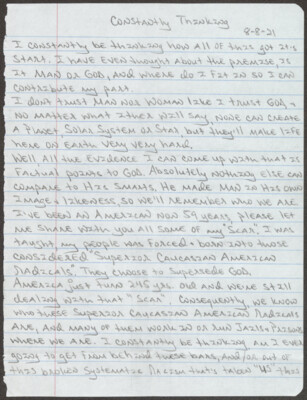 Constantly Thinking
8-8-21
I constantly be thinking how all of this got it's
start. I have even thought about the premise, is
it Man or God, and where do I fit in so I can
contribute my part.
I don't trust Man nor Woman like I trust God,
no matter whatither will say, none can create
a Planet, Solar System or Star, but they'll make life
here on Earth very very hard.
Well, all the evidence I can come up with that is
Factual points to God. Absolutely nothing else can
compare to His Smarts. He made Man in His own
Image & likeness, so we'll remember who we are.
I've been an American now 59 years, please let
me share with you all some of my "Scar", I was
taught, my people was forced & born into those
considered "Superior Caucasian American
Radicals". They choose to supersede God.
America just turn 245 yrs old and we're still
dealing with that "Scar". Consequently, we know
who these Superior Caucasian American Radicals
are, and many of them work in or run Jails & Prisons
where we are. I constantly be thinking am I ever
going to get from behind these bars, and/or out of
this broken Systematic Racism that's taken "US"